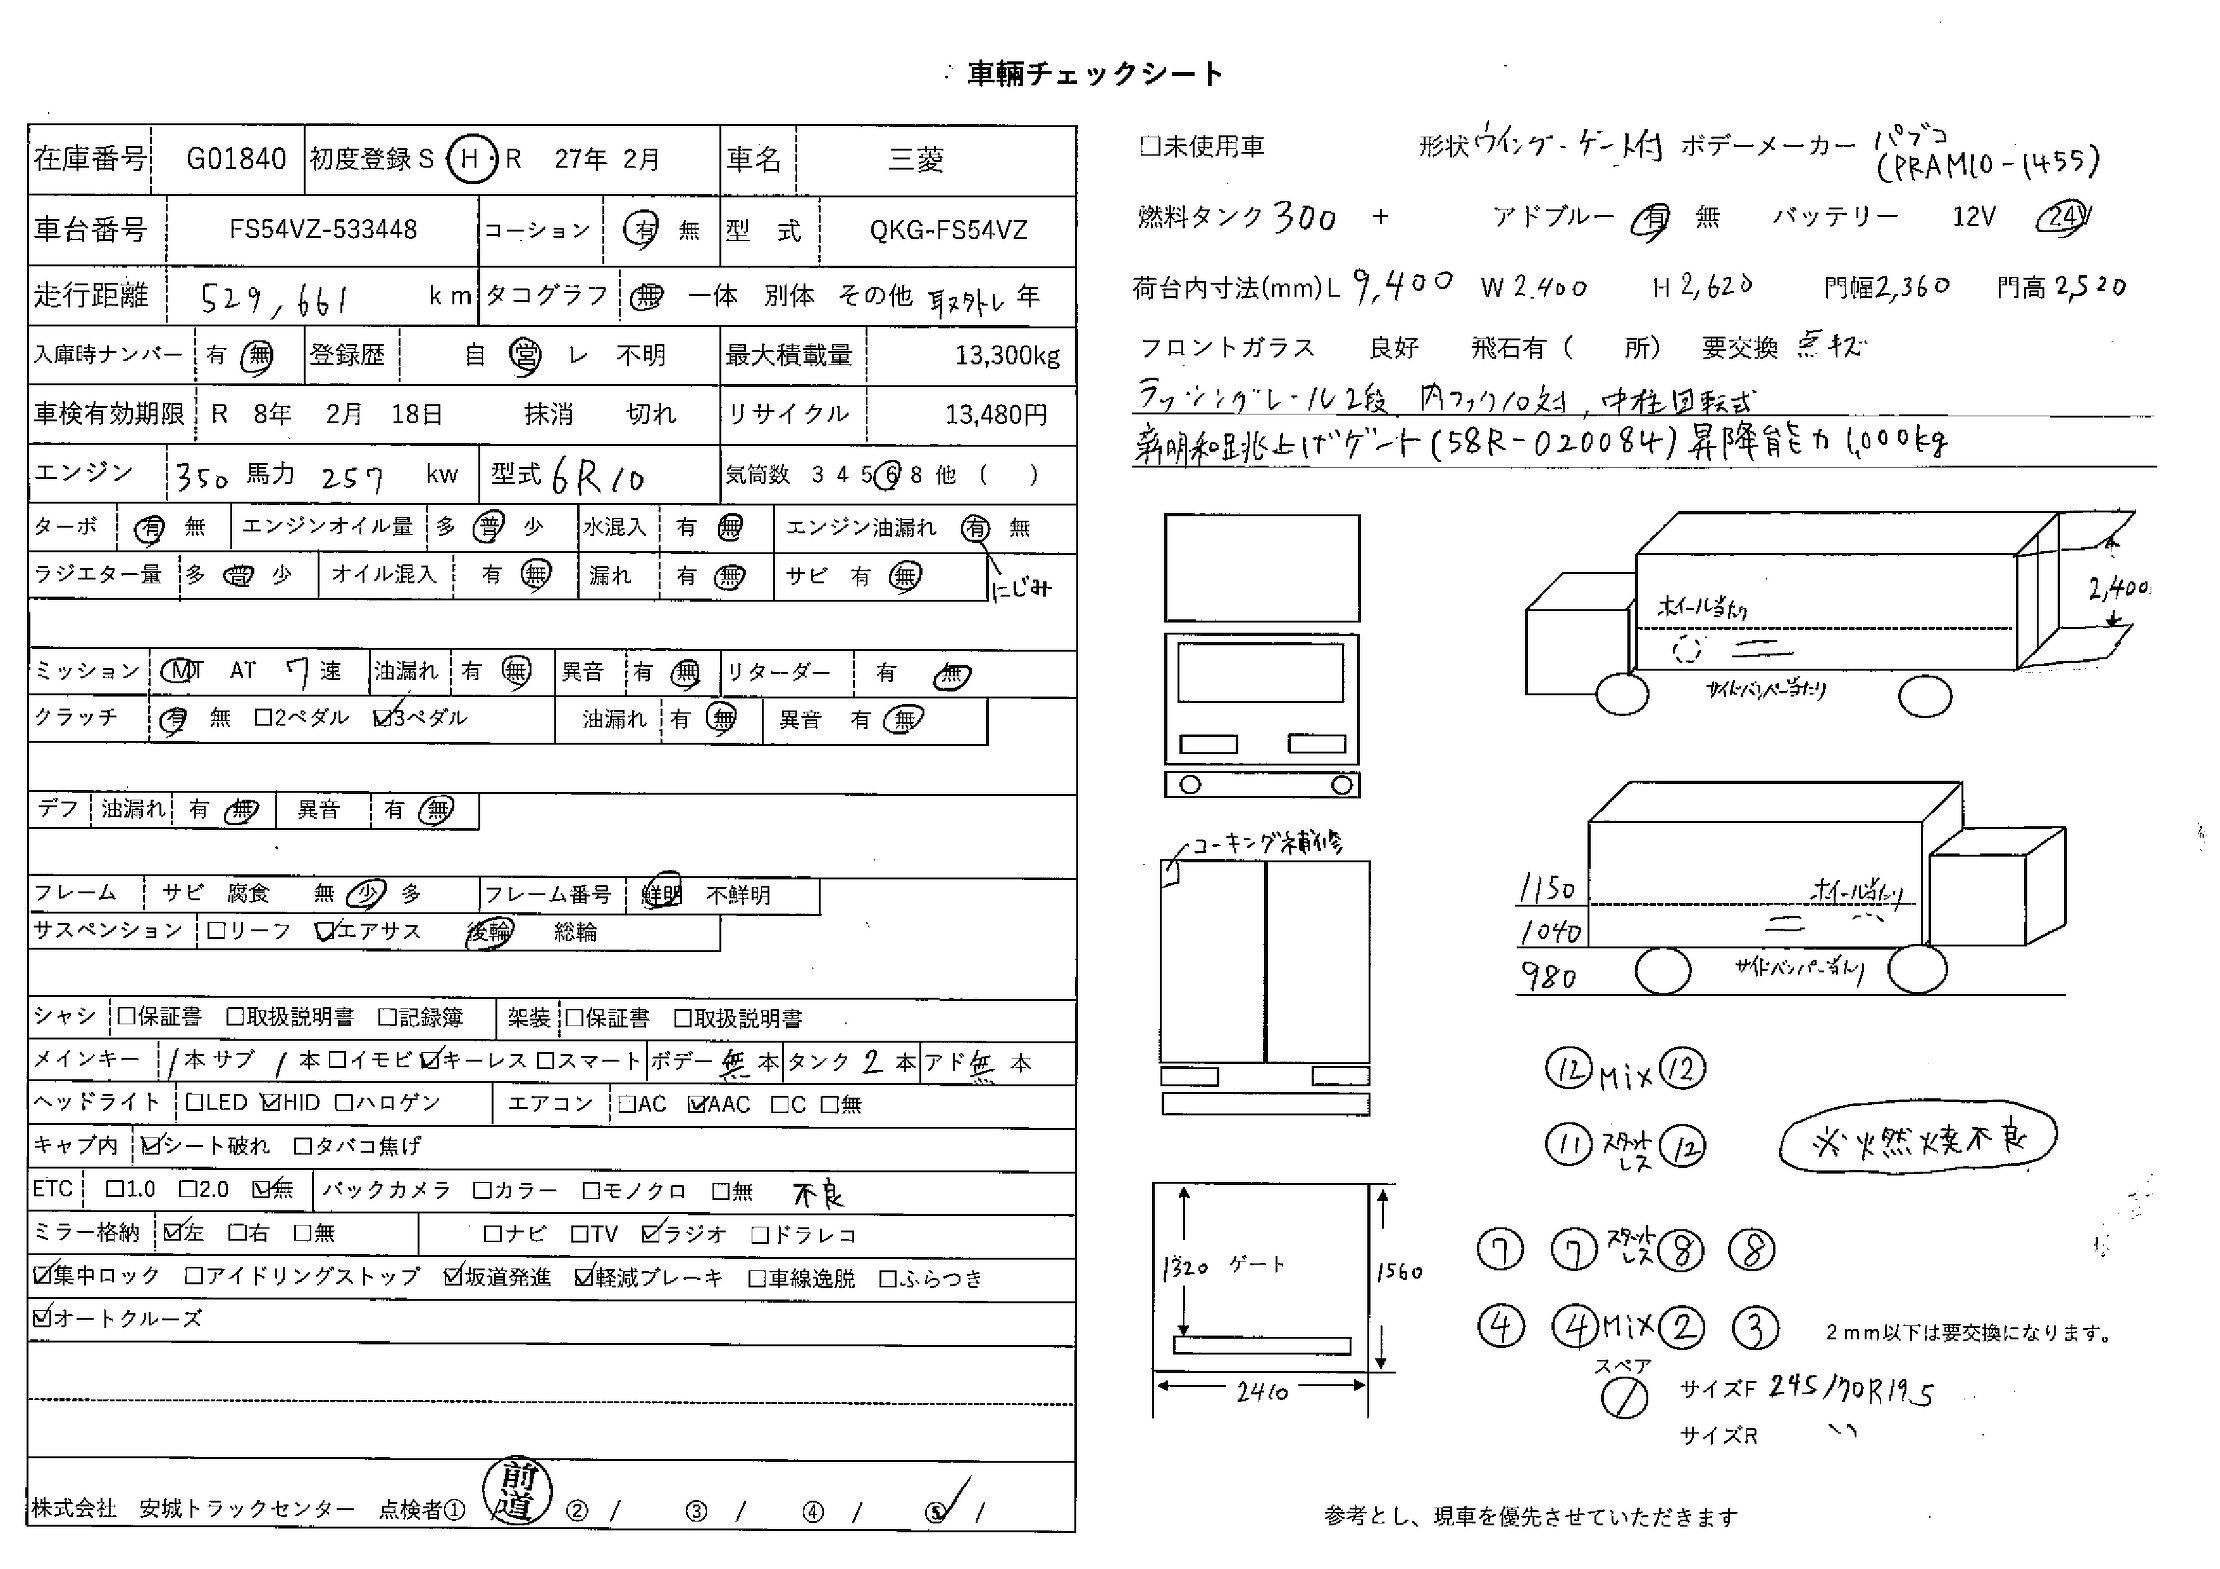 車輌チェックシート
在庫番号 G01840 初度登録 S・H・R 27年 2月 車名 三菱
車台番号 FS54VZ-533448 コーション 有 無 型 式 QKG-FS54VZ
走行距離 529,661 km タコグラフ 無 一体 別体 その他 年
入庫時ナンバー 有 無 登録歴 自 営 レ 不明 最大積載量 13,300kg
車検有効期限 R 8年 2月 18日 抹消 切れ リサイクル 13,480円
エンジン 350 馬力 257 kw 型式 6R10 気筒数 3 4 5 6 8 他 ( )
ターボ 有 無 エンジンオイル量 多 普 少 水混入 有 無 エンジン油漏れ 有 無
ラジエター量 多 普 少 オイル混入 有 無 漏れ 有 無 サビ 有 無 にじみ
ミッション MT AT 7 速 油漏れ 有 無 異音 有 無 リターダー 有 無
クラッチ 有 無 □2ペダル ☑3ペダル 油漏れ 有 無 異音 有 無
デフ 油漏れ 有 無 異音 有 無
フレーム サビ 腐食 無 少 多 フレーム番号 鮮明 不鮮明
サスペンション □リーフ ☑エアサス 後輪 総輪
シャシ □保証書 □取扱説明書 □記録簿 架装 □保証書 □取扱説明書
メインキー 1本 サブ 1本 □イモビ ☑キーレス □スマート ボデー 無 本 タンク 2 本 アド 無 本
ヘッドライト □LED ☑HID □ハロゲン エアコン □AC ☑AAC □C □無
キャブ内 ☑シート破れ □タバコ焦げ
ETC □1.0 □2.0 ☑無 バックカメラ □カラー □モノクロ □無 不良
ミラー格納 ☑左 □右 □無 □ナビ □TV ☑ラジオ □ドラレコ
☑集中ロック □アイドリングストップ ☑坂道発進 ☑軽減ブレーキ □車線逸脱 □ふらつき
☑オートクルーズ
株式会社 安城トラックセンター 点検者① 前道 ② / ③ / ④ / ⑤ /
□未使用車 形状 ウイング・ゲート付 ボデーメーカー パブコ
(PRAM10-1455)
燃料タンク 300 + アドブルー 有 無 バッテリー 12V 24V
荷台内寸法(mm) L 9,400 W 2,400 H 2,620 門幅 2,360 門高 2,520
フロントガラス 良好 飛石有 ( 所) 要交換 点キズ
ラッシングレール2段、内フック10対、中柱回転式
新明和跳上げゲート(58R-020084)昇降能力1,000kg
ホイール当たり
2,400
サイドバンパー当たり
コーキング補修
1150 ホイール当たり
1040
980 サイドバンパー当たり
⑫ Mix ⑫
⑪ スタットレス ⑫
※燃焼不良
⑦ ⑦ スタットレス ⑧ ⑧
1320 ゲート 1560
④ ④ Mix ② ③ 2mm以下は要交換になります。
スペア
2410
サイズF 245/70R19.5
サイズR 〃
参考とし、現車を優先させていただきます